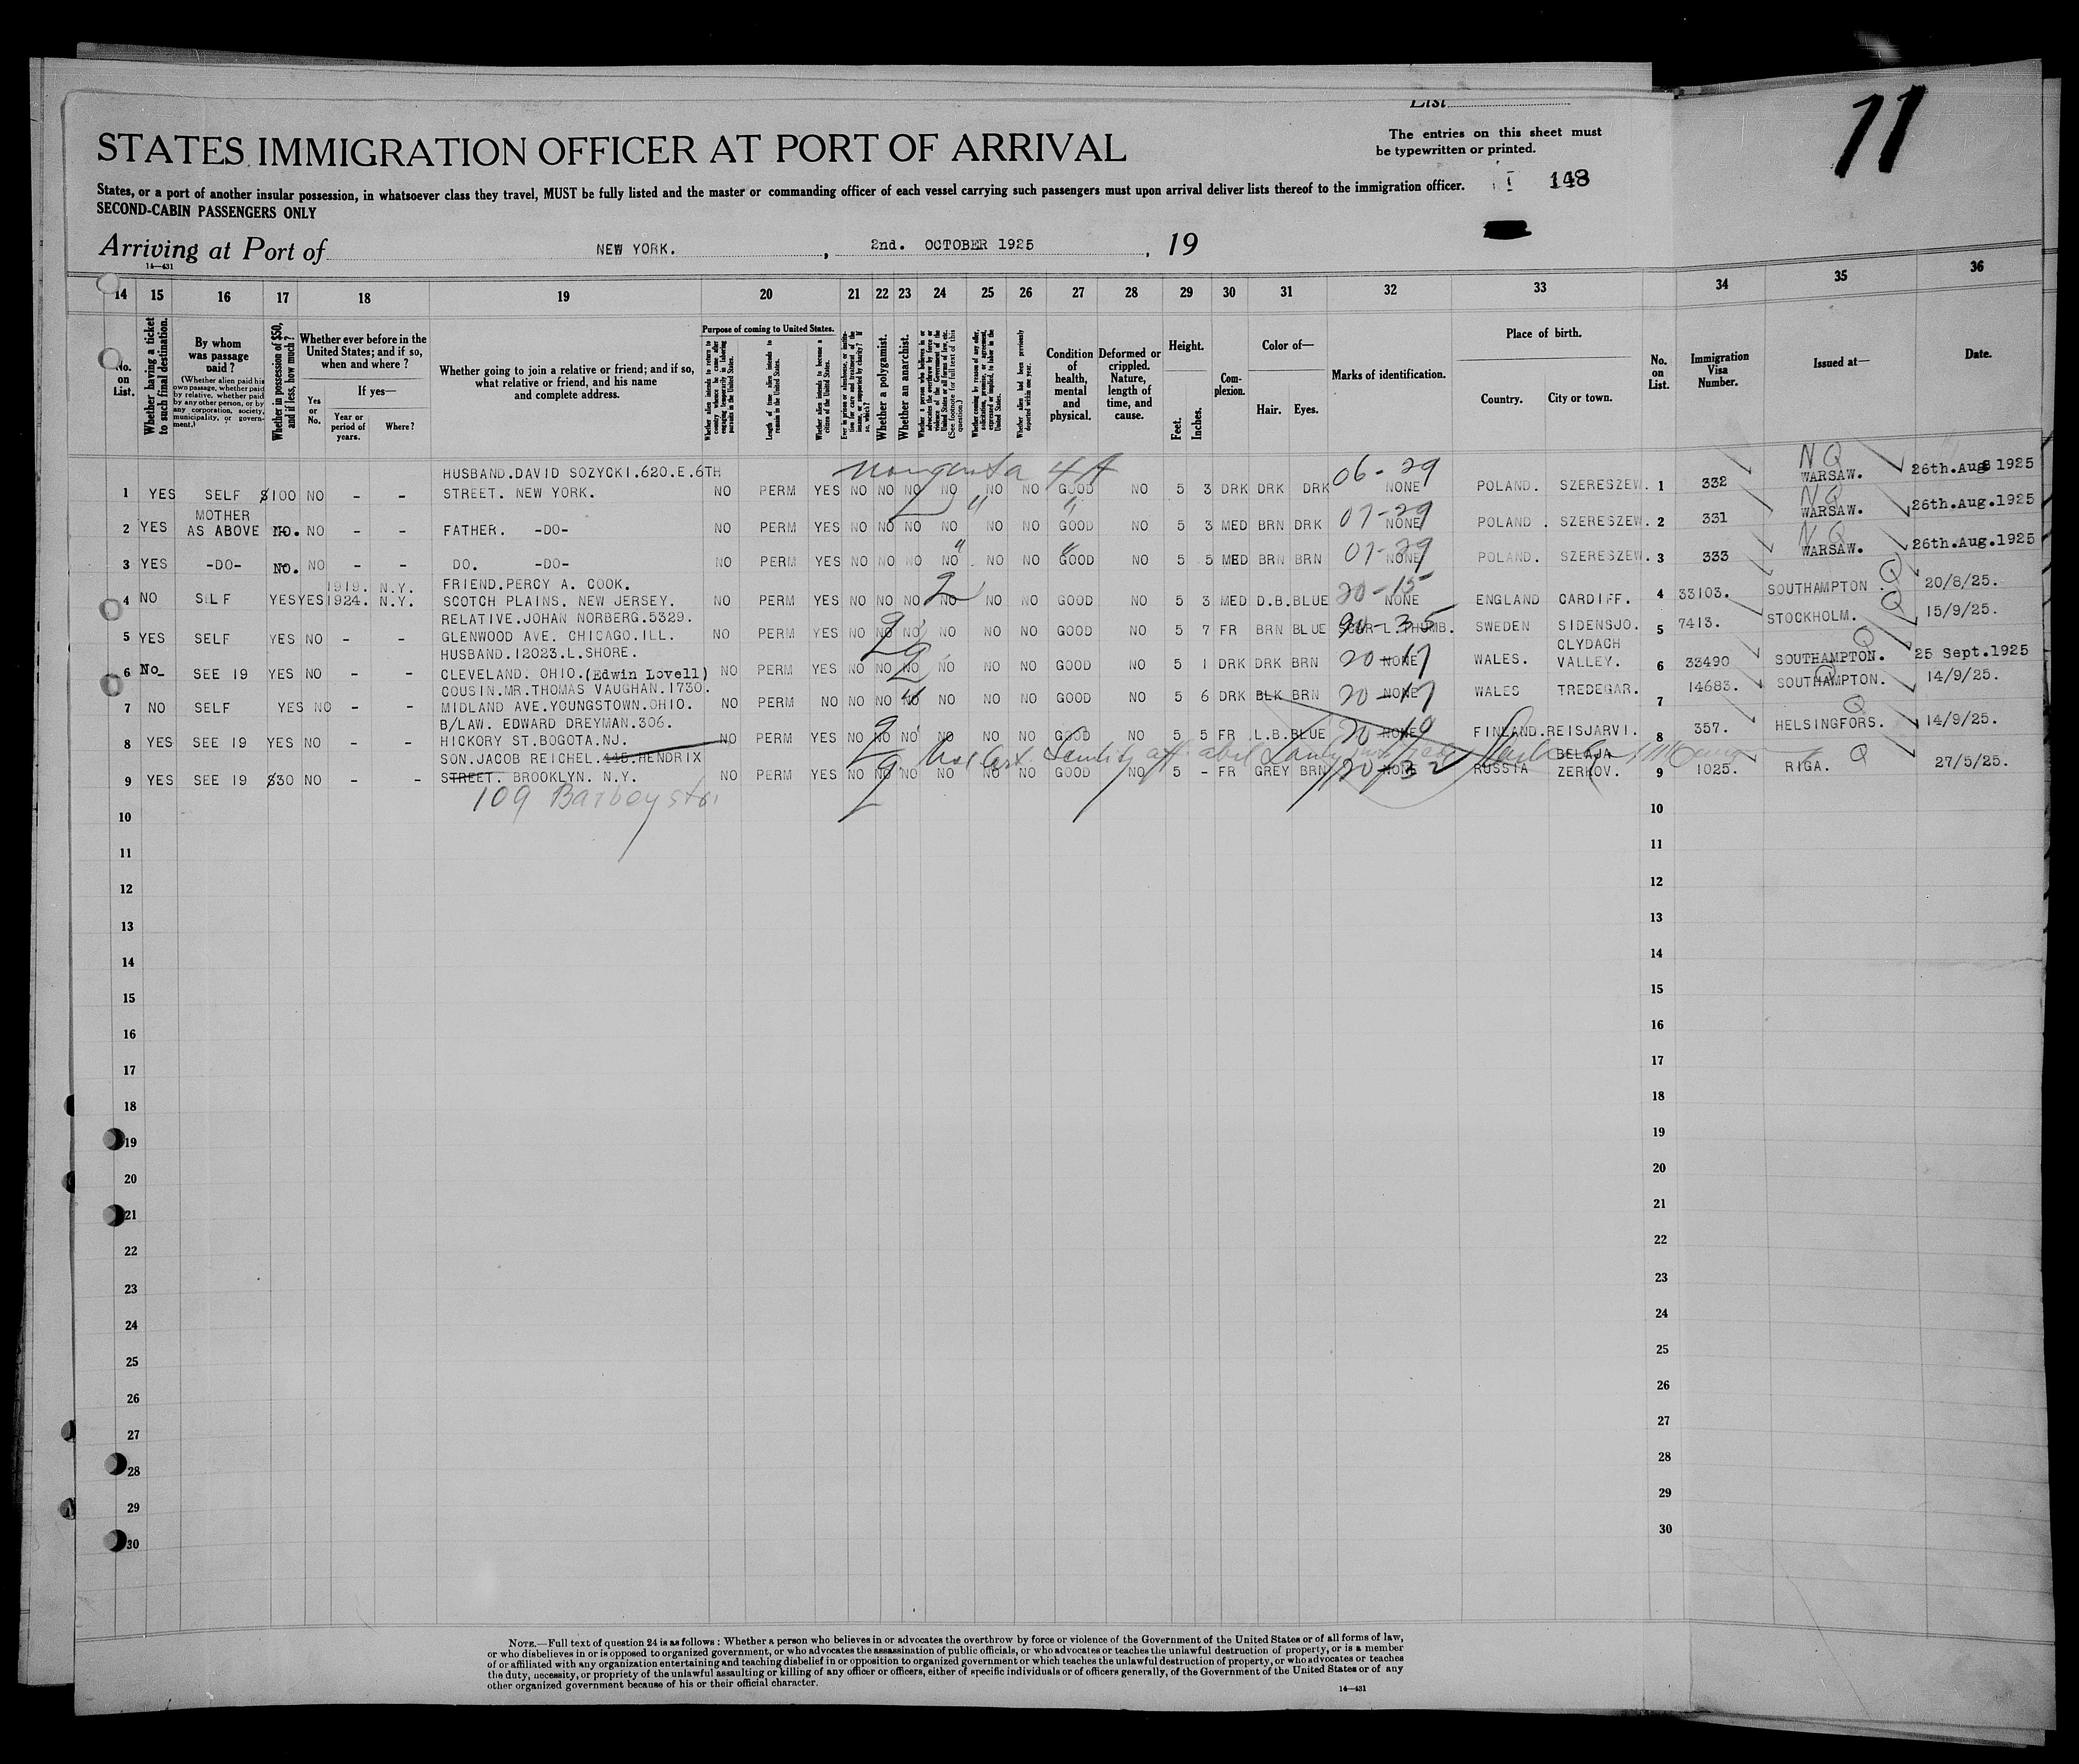 List
11
STATES IMMIGRATION OFFICER AT PORT OF ARRIVAL
The entries on this sheet must
be typewritten or printed.
States, or a port of another insular possession, in whatsoever class they travel, MUST be fully listed and the master or commanding officer of each vessel carrying such passengers must upon arrival deliver lists thereof to the immigration officer.
148
SECOND-CABIN PASSENGERS ONLY
Arriving at Port of NEW YORK. , 2nd. OCTOBER 1925 , 19
14—431
14 15 16 17 18 19 20 21 22 23 24 25 26 27 28 29 30 31 32 33 34 35 36
No. on List.
Whether having a ticket to such final destination.
By whom was passage paid?
(Whether alien paid his own passage, whether paid by relative, whether paid by any other person, or by any corporation, society, municipality, or government.)
Whether in possession of $50, and if less, how much?
Whether ever before in the United States; and if so, when and where?
If yes—
Yes or No.
Year or period of years.
Where?
Whether going to join a relative or friend; and if so, what relative or friend, and his name and complete address.
Purpose of coming to United States.
Whether alien intends to return to country whence he came after engaging temporarily in laboring pursuits in the United States.
Length of time alien intends to remain in the United States.
Whether alien intends to become a citizen of the United States.
Whether a polygamist.
Whether an anarchist.
Condition of health, mental and physical.
Deformed or crippled. Nature, length of time, and cause.
Height.
Feet.
Inches.
Complexion.
Color of—
Hair.
Eyes.
Marks of identification.
Place of birth.
Country.
City or town.
No. on List.
Immigration Visa Number.
Issued at—
Date.
HUSBAND.DAVID SOZYCKI.620.E.6TH 4A 06-29 NQ
1 YES SELF $100 NO - - STREET. NEW YORK. NO PERM YES NO NO NO NO NO NO GOOD NO 5 3 DRK DRK DRK NONE POLAND. SZERESZEW. 1 332 WARSAW. 26th.Aug 1925
MOTHER 07-29 NQ
2 YES AS ABOVE NO. NO - - FATHER. -DO- NO PERM YES NO NO NO NO NO NO GOOD NO 5 3 MED BRN DRK NONE POLAND . SZERESZEW. 2 331 WARSAW. 26th.Aug.1925
07-29 NQ
3 YES -DO- NO. NO - - DO. -DO- NO PERM YES NO NO NO NO NO NO GOOD NO 5 5 MED BRN BRN NONE POLAND. SZERESZEW. 3 333 WARSAW. 26th.Aug.1925
1919. N.Y. FRIEND.PERCY A. COOK. 20-15 Q
4 NO SELF YES YES 1924. N.Y. SCOTCH PLAINS. NEW JERSEY. NO PERM YES NO NO NO NO NO NO GOOD NO 5 3 MED D.B.BLUE NONE ENGLAND CARDIFF. 4 33103. SOUTHAMPTON . 20/8/25.
RELATIVE.JOHAN NORBERG.5329. Q
5 YES SELF YES NO - - GLENWOOD AVE. CHICAGO.ILL. NO PERM YES NO NO NO NO NO NO GOOD NO 5 7 FR BRN BLUE SCAR-L.THUMB. SWEDEN SIDENSJO. 5 7413. STOCKHOLM. 15/9/25.
HUSBAND.12023.L.SHORE. 20-17 CLYDACH Q
6 No_ SEE 19 YES NO - - CLEVELAND. OHIO.(Edwin Lovell) NO PERM YES NO NO NO NO NO NO GOOD NO 5 1 DRK DRK BRN NONE WALES. VALLEY. 6 33490 SOUTHAMPTON. 25 Sept.1925
COUSIN.MR.THOMAS VAUGHAN.1730. 20-17 Q
7 NO SELF YES NO - - MIDLAND AVE.YOUNGSTOWN.OHIO. NO PERM NO NO NO NO NO NO NO GOOD NO 5 6 DRK BLK BRN NONE WALES TREDEGAR. 7 14683. SOUTHAMPTON. 14/9/25.
B/LAW. EDWARD DREYMAN.306. Q
8 YES SEE 19 YES NO - - HICKORY ST.BOGOTA.NJ. NO PERM YES NO NO NO NO NO NO GOOD NO 5 5 FR L.B.BLUE NONE FINLAND.REISJARVI. 8 357. HELSINGFORS. 14/9/25.
SON.JACOB REICHEL.445.HENDRIX BELAJA
9 YES SEE 19 $30 NO - - STREET. BROOKLYN. N.Y. NO PERM YES NO NO NO NO NO NO GOOD NO 5 - FR GREY BRN NONE RUSSIA ZERKOV. 9 1025. RIGA. Q 27/5/25.
109 Barbey str.
10 10
11 11
12 12
13 13
14 14
15 15
16 16
17 17
18 18
19 19
20 20
21 21
22 22
23 23
24 24
25 25
26 26
27 27
28 28
29 29
30 30
NOTE.—Full text of question 24 is as follows: Whether a person who believes in or advocates the overthrow by force or violence of the Government of the United States or of all forms of law,
or who disbelieves in or is opposed to organized government, or who advocates the assassination of public officials, or who advocates or teaches the unlawful destruction of property, or is a member
of or affiliated with any organization entertaining and teaching disbelief in or opposition to organized government or which teaches the unlawful destruction of property, or who advocates or teaches
the duty, necessity, or propriety of the unlawful assaulting or killing of any officer or officers, either of specific individuals or of officers generally, of the Government of the United States or of any
other organized government because of his or their official character.
14—431